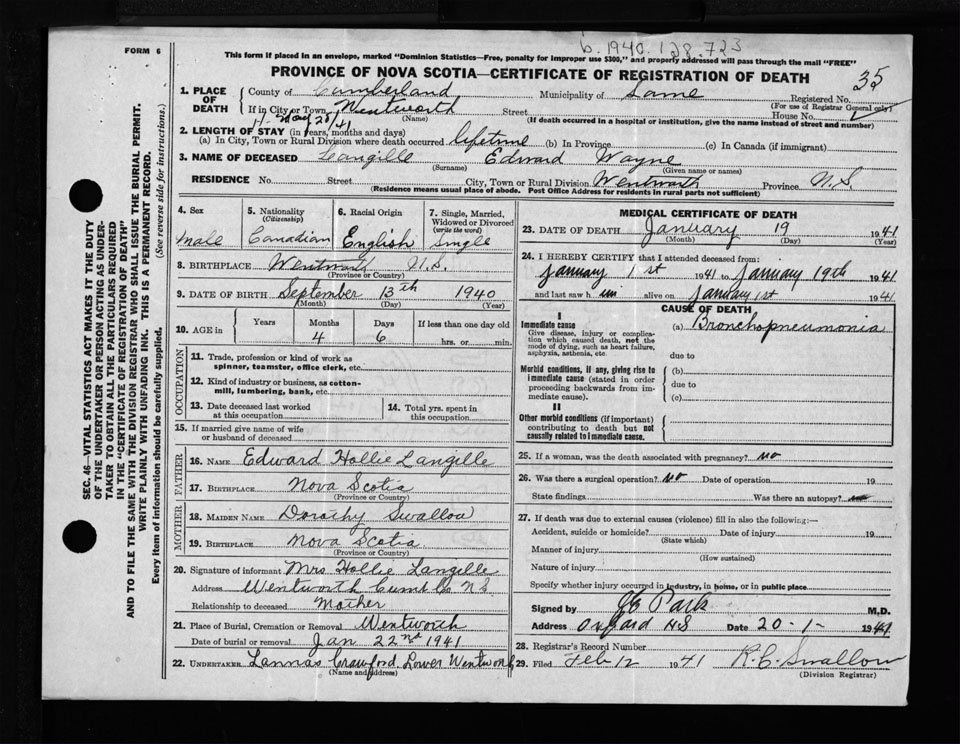 b. 1940. 128.723
FORM 6
This form if placed in an envelope, marked "Dominion Statistics—Free, penalty for improper use $300," and properly addressed will pass through the mail "FREE"
PROVINCE OF NOVA SCOTIA—CERTIFICATE OF REGISTRATION OF DEATH
35
1. PLACE OF DEATH
County of Cumberland Municipality of Same Registered No.
(For use of Registrar General only)
If in City or Town Wentworth Street House No.
(Name) (If death occurred in a hospital or institution, give the name instead of street and number)
2. LENGTH OF STAY (in years, months and days)
(a) In City, Town or Rural Division where death occurred lifetime (b) In Province (c) In Canada (if immigrant)
3. NAME OF DECEASED Langille Edward Wayne
(Surname) (Given name or names)
RESIDENCE No. Street City, Town or Rural Division Wentworth Province N.S.
(Residence means usual place of abode. Post Office Address for residents in rural parts not sufficient)
4. Sex
male
5. Nationality
(Citizenship)
Canadian
6. Racial Origin
English
7. Single, Married, Widowed or Divorced
(write the word)
Single
8. BIRTHPLACE Wentworth N.S.
(Province or Country)
9. DATE OF BIRTH September 13th 1940
(Month) (Day) (Year)
10. AGE in
Years Months Days If less than one day old
4 6 hrs. or min.
OCCUPATION
11. Trade, profession or kind of work as
spinner, teamster, office clerk, etc.
12. Kind of industry or business, as cotton-
mill, lumbering, bank, etc.
13. Date deceased last worked
at this occupation
14. Total yrs. spent in
this occupation
15. If married give name of wife
or husband of deceased
FATHER
16. NAME Edward Hollie Langille
17. BIRTHPLACE Nova Scotia
(Province or Country)
MOTHER
18. MAIDEN NAME Dorothy Swallow
19. BIRTHPLACE Nova Scotia
(Province or Country)
20. Signature of informant Mrs Hollie Langille
Address Wentworth Cumb Co NS
Relationship to deceased Mother
21. Place of Burial, Cremation or Removal Wentworth
Date of burial or removal Jan 22nd 1941
22. UNDERTAKER Crawford, Lower Wentworth
(Name and address)
MEDICAL CERTIFICATE OF DEATH
23. DATE OF DEATH January 19 1941
(Month) (Day) (Year)
24. I HEREBY CERTIFY that I attended deceased from:
January 1st 1941 to January 19th 1941
and last saw him alive on January 1st 1941
CAUSE OF DEATH
I
Immediate cause
Give disease, injury or complica-
tion which caused death, not the
mode of dying, such as heart failure,
asphyxia, asthenia, etc.
(a) Bronchopneumonia
due to
Morbid conditions, if any, giving rise to
immediate cause (stated in order
proceeding backwards from im-
mediate cause).
(b)
due to
(c)
II
Other morbid conditions (if important)
contributing to death but not
causally related to immediate cause.
25. If a woman, was the death associated with pregnancy? no
26. Was there a surgical operation? no Date of operation 19
State findings Was there an autopsy? no
27. If death was due to external causes (violence) fill in also the following:—
Accident, suicide or homicide? Date of injury 19
(State which)
Manner of injury
(How sustained)
Nature of injury
Specify whether injury occurred in industry, in home, or in public place
Signed by J E Park M.D.
Address Oxford N.S Date 20-1- 1941
28. Registrar's Record Number
29. Filed Feb 12 1941 R.C. Swallow
(Division Registrar)
SEC. 46—VITAL STATISTICS ACT MAKES IT THE DUTY
OF THE UNDERTAKER OR PERSON ACTING AS UNDER-
TAKER TO OBTAIN ALL THE PARTICULARS REQUIRED
IN THE "CERTIFICATE OF REGISTRATION OF DEATH"
AND TO FILE THE SAME WITH THE DIVISION REGISTRAR WHO SHALL ISSUE THE BURIAL PERMIT.
WRITE PLAINLY WITH UNFADING INK. THIS IS A PERMANENT RECORD.
Every item of information should be carefully supplied. (See reverse side for instructions.)